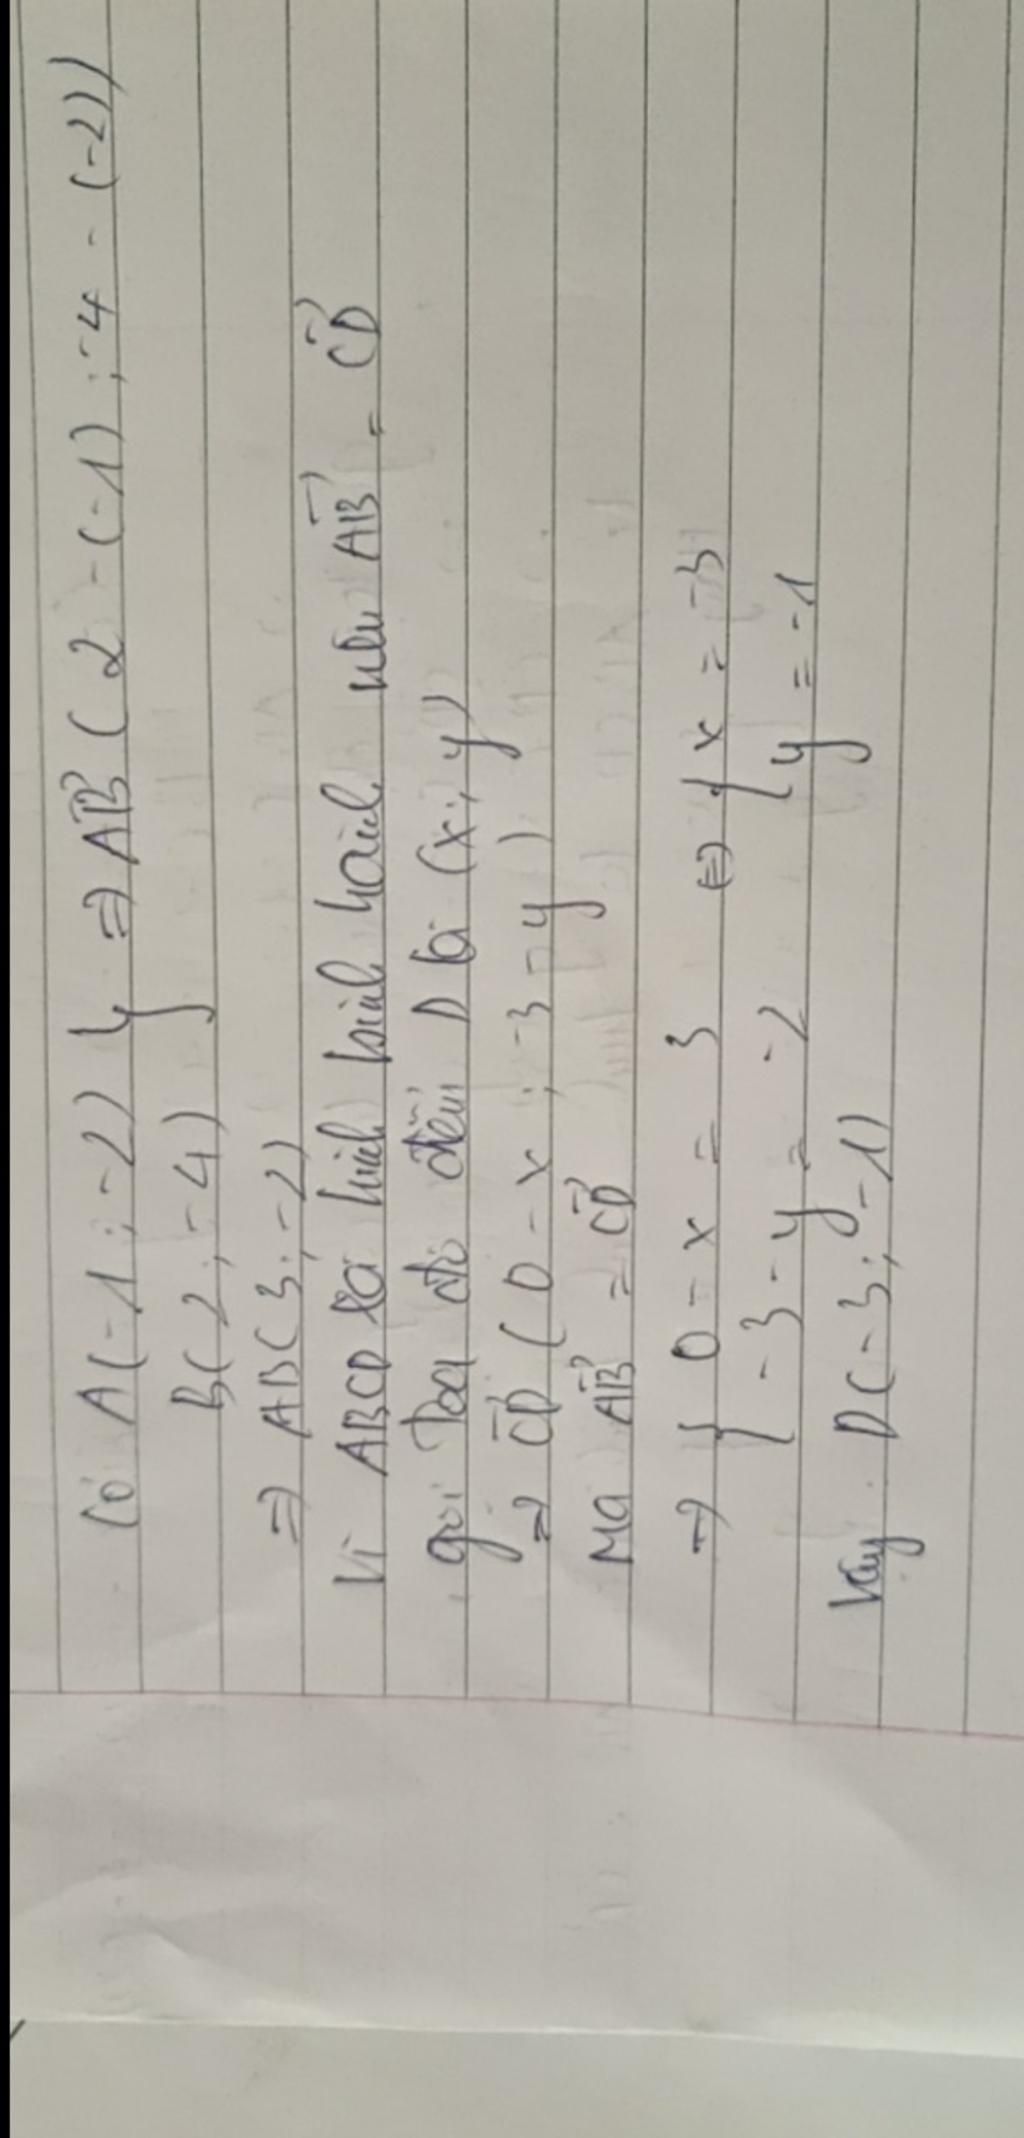 Có A(-1; -2) } ⇒ AB→ (2 - (-1); -4 - (-2))
B(2; -4)
⇒ AB(3; -2)
Vì ABCD là hình bình hành nên AB→ = CD→
gọi Toạ độ điểm D là (x; y)
⇒ CD→ (0 - x; -3 - y)
Mà AB→ = CD→
→ { 0 - x = 3 ⇔ { x = -3
{ -3 - y = -2 { y = -1
Vậy D(-3; -1)